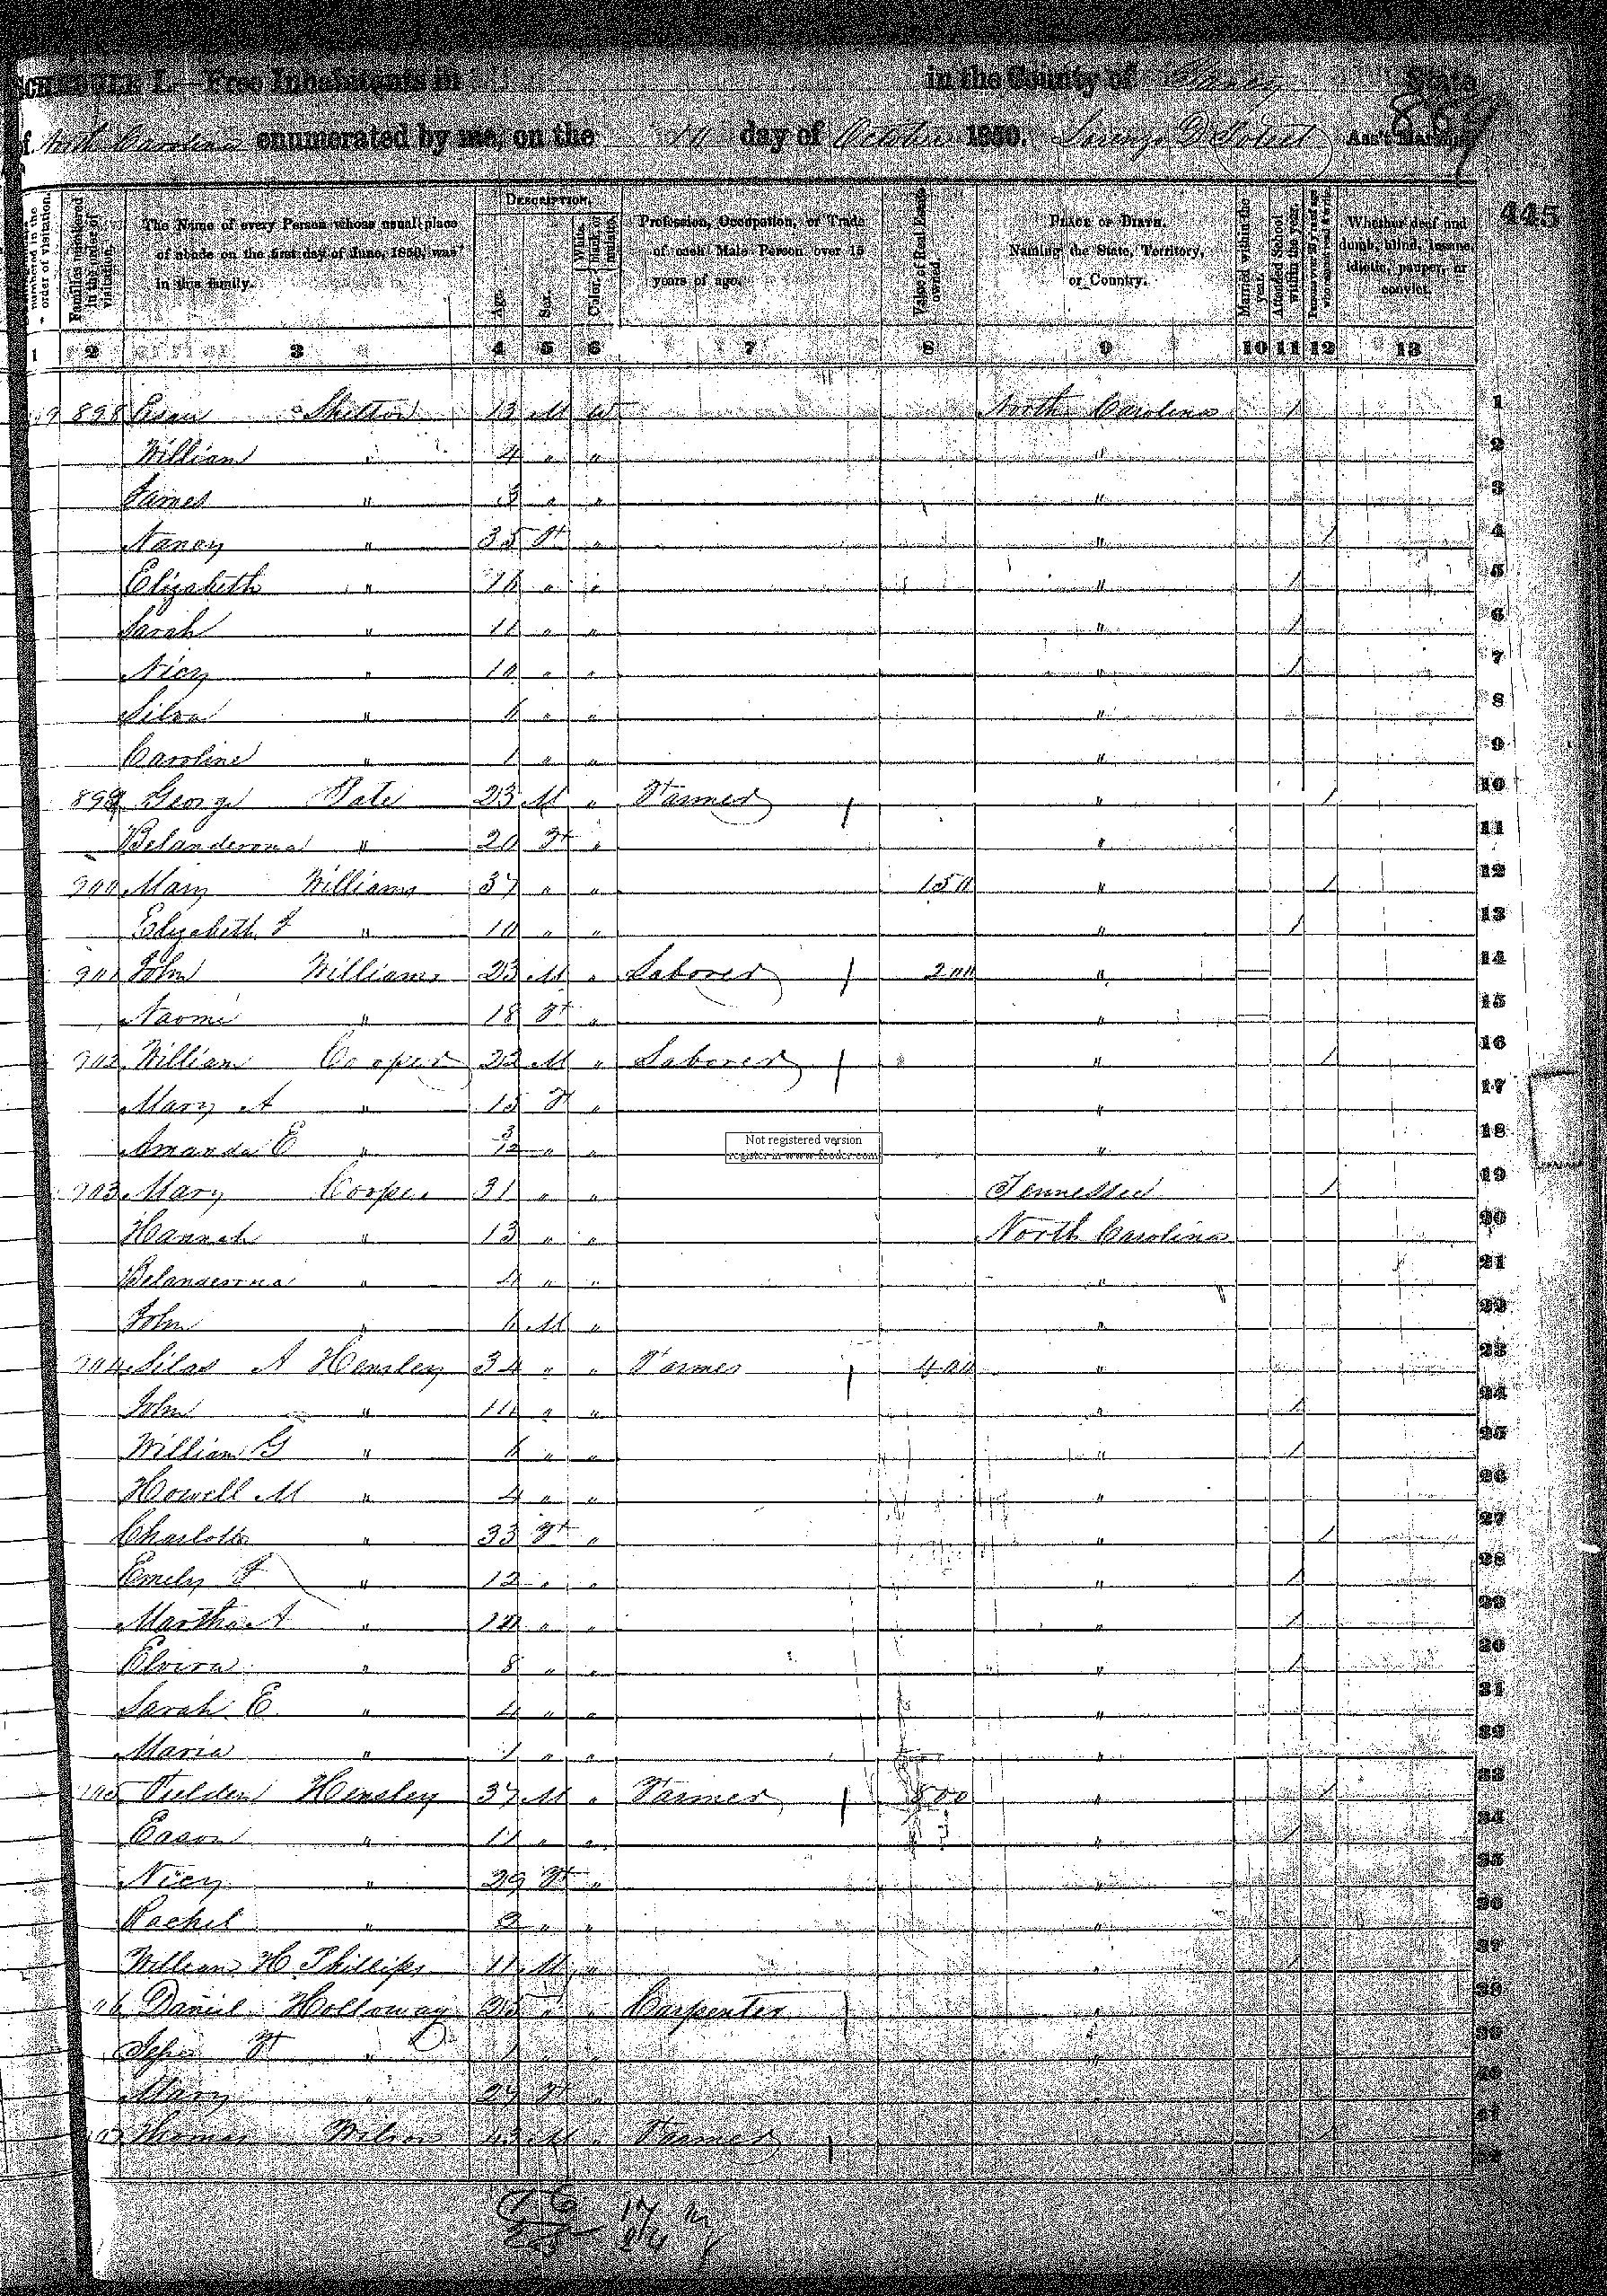 SCHEDULE I.—Free Inhabitants in in the County of Yancey State
of North Carolina enumerated by me, on the 10 day of October 1850. Lorenzo D Ass't Marshal.
445
numbered in the order of visitation.
Families numbered in the order of visitation.
The Name of every Person whose usual place of abode on the first day of June, 1850, was in this family.
DESCRIPTION.
Age.
Sex.
Color, White, black, or mulatto.
Profession, Occupation, or Trade of each Male Person over 15 years of age.
Value of Real Estate owned.
PLACE OF BIRTH. Naming the State, Territory, or Country.
Married within the year.
Attended School within the year.
Persons over 20 y'rs of age who cannot read & write.
Whether deaf and dumb, blind, insane, idiotic, pauper, or convict.
1 2 3 4 5 6 7 8 9 10 11 12 13
898 Esau Shelton 13 M W North Carolina 1 1
William " 4 " " " 2
James " 3 " " " 3
Nancy " 35 F " " 1 4
Elizabeth " 16 " " " 1 5
Sarah " 11 " " " 1 6
Nicy " 10 " " " 1 7
Silva " " " " 8
Caroline " 1 " " " 9
899 George Pate 23 M " Farmer " 1 10
" 20 F " " 11
900 Mary Williams 37 " " 150 " 1 12
Elizabeth " 10 " " " 1 13
901 John Williams 23 M " Laborer 200 " 14
Naomi " 18 F " " 15
902 William Cooper 22 M " Laborer " 1 16
Mary A " 15 F " " 17
Amanda E " 3/12 " " " 18
Not registered version
register in www.feoder.com
903 Mary Cooper 31 " " Tennessee 1 19
Hannah " 13 " " North Carolina 20
" " " " 21
John " M " " 22
904 Silas A Hensley 34 " " Farmer 400 " 23
John " " " " 1 24
William G " " " " 1 25
Howell M " 4 " " " 26
Charlotte " 33 F " " 1 27
Emely " 12 " " " 1 28
Martha A " 10 " " " 1 29
Elvira " 8 " " " 1 30
Sarah E " 4 " " " 31
Maria " 1 " " " 32
905 Hensley 37 M " Farmer 800 " 1 33
Eason " 11 " " " 1 34
Nicy " 29 F " " 35
Rachel " " " " 36
William H Phillips 11 M " " 1 37
Daniel Holloway 25 " " Carpenter " 38
" 1 " " " 39
Mary " F " 40
Thomas Wilson M " Farmer 41
42
17 m